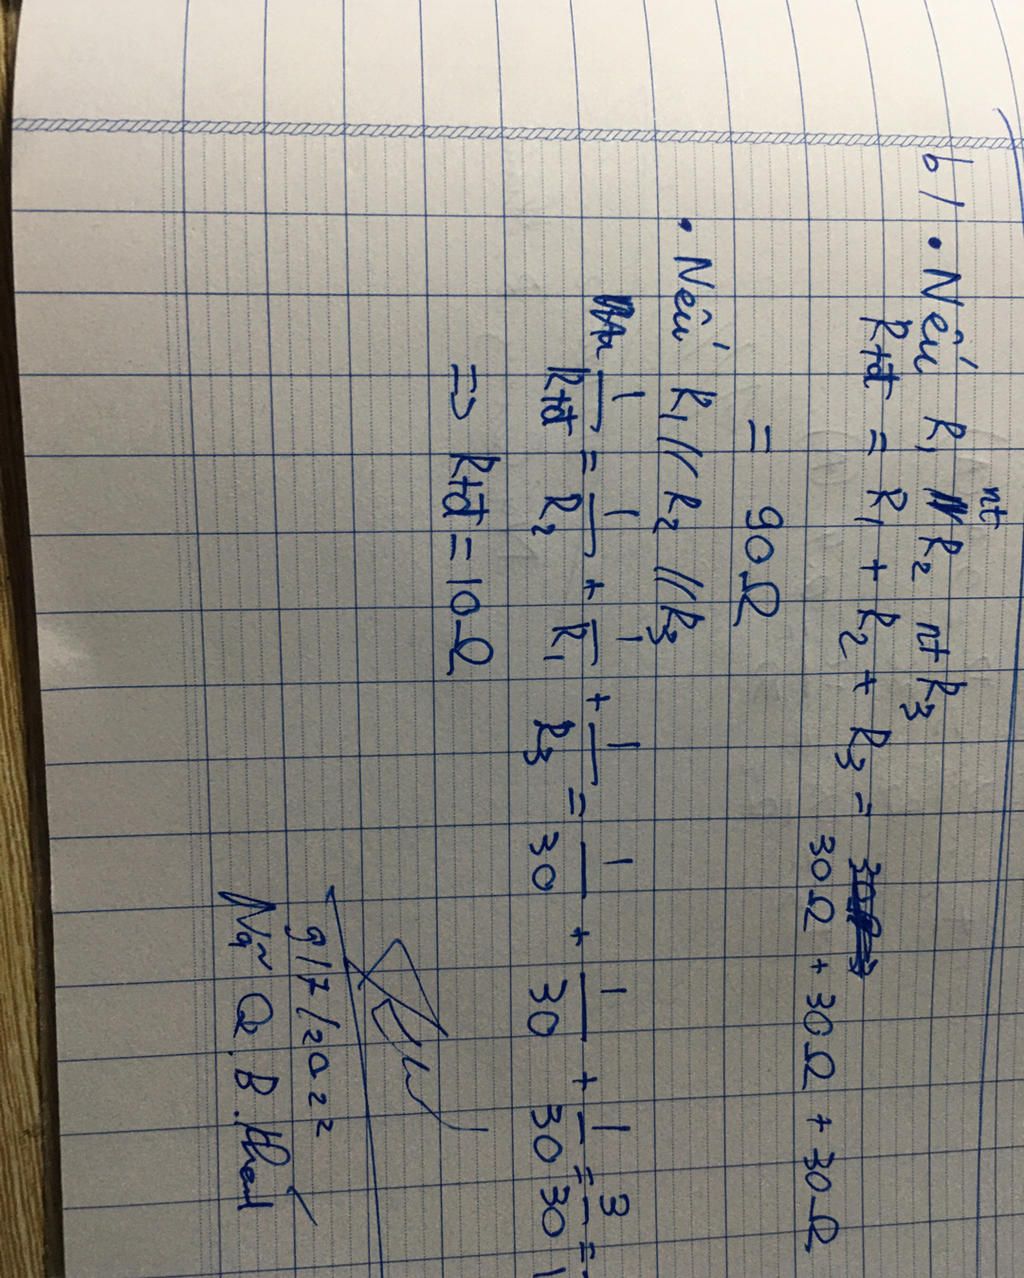 b/ • Nếu R1 nt R2 nt R3
Rtđ = R1 + R2 + R3 =
30Ω + 30Ω + 30Ω
= 90Ω
• Nếu R1 // R2 // R3
1/Rtđ = 1/R2 + 1/R1 + 1/R3 = 1/30 + 1/30 + 1/30 = 3/30 =
=> Rtđ = 10Ω
9/7/2022
Q. B.